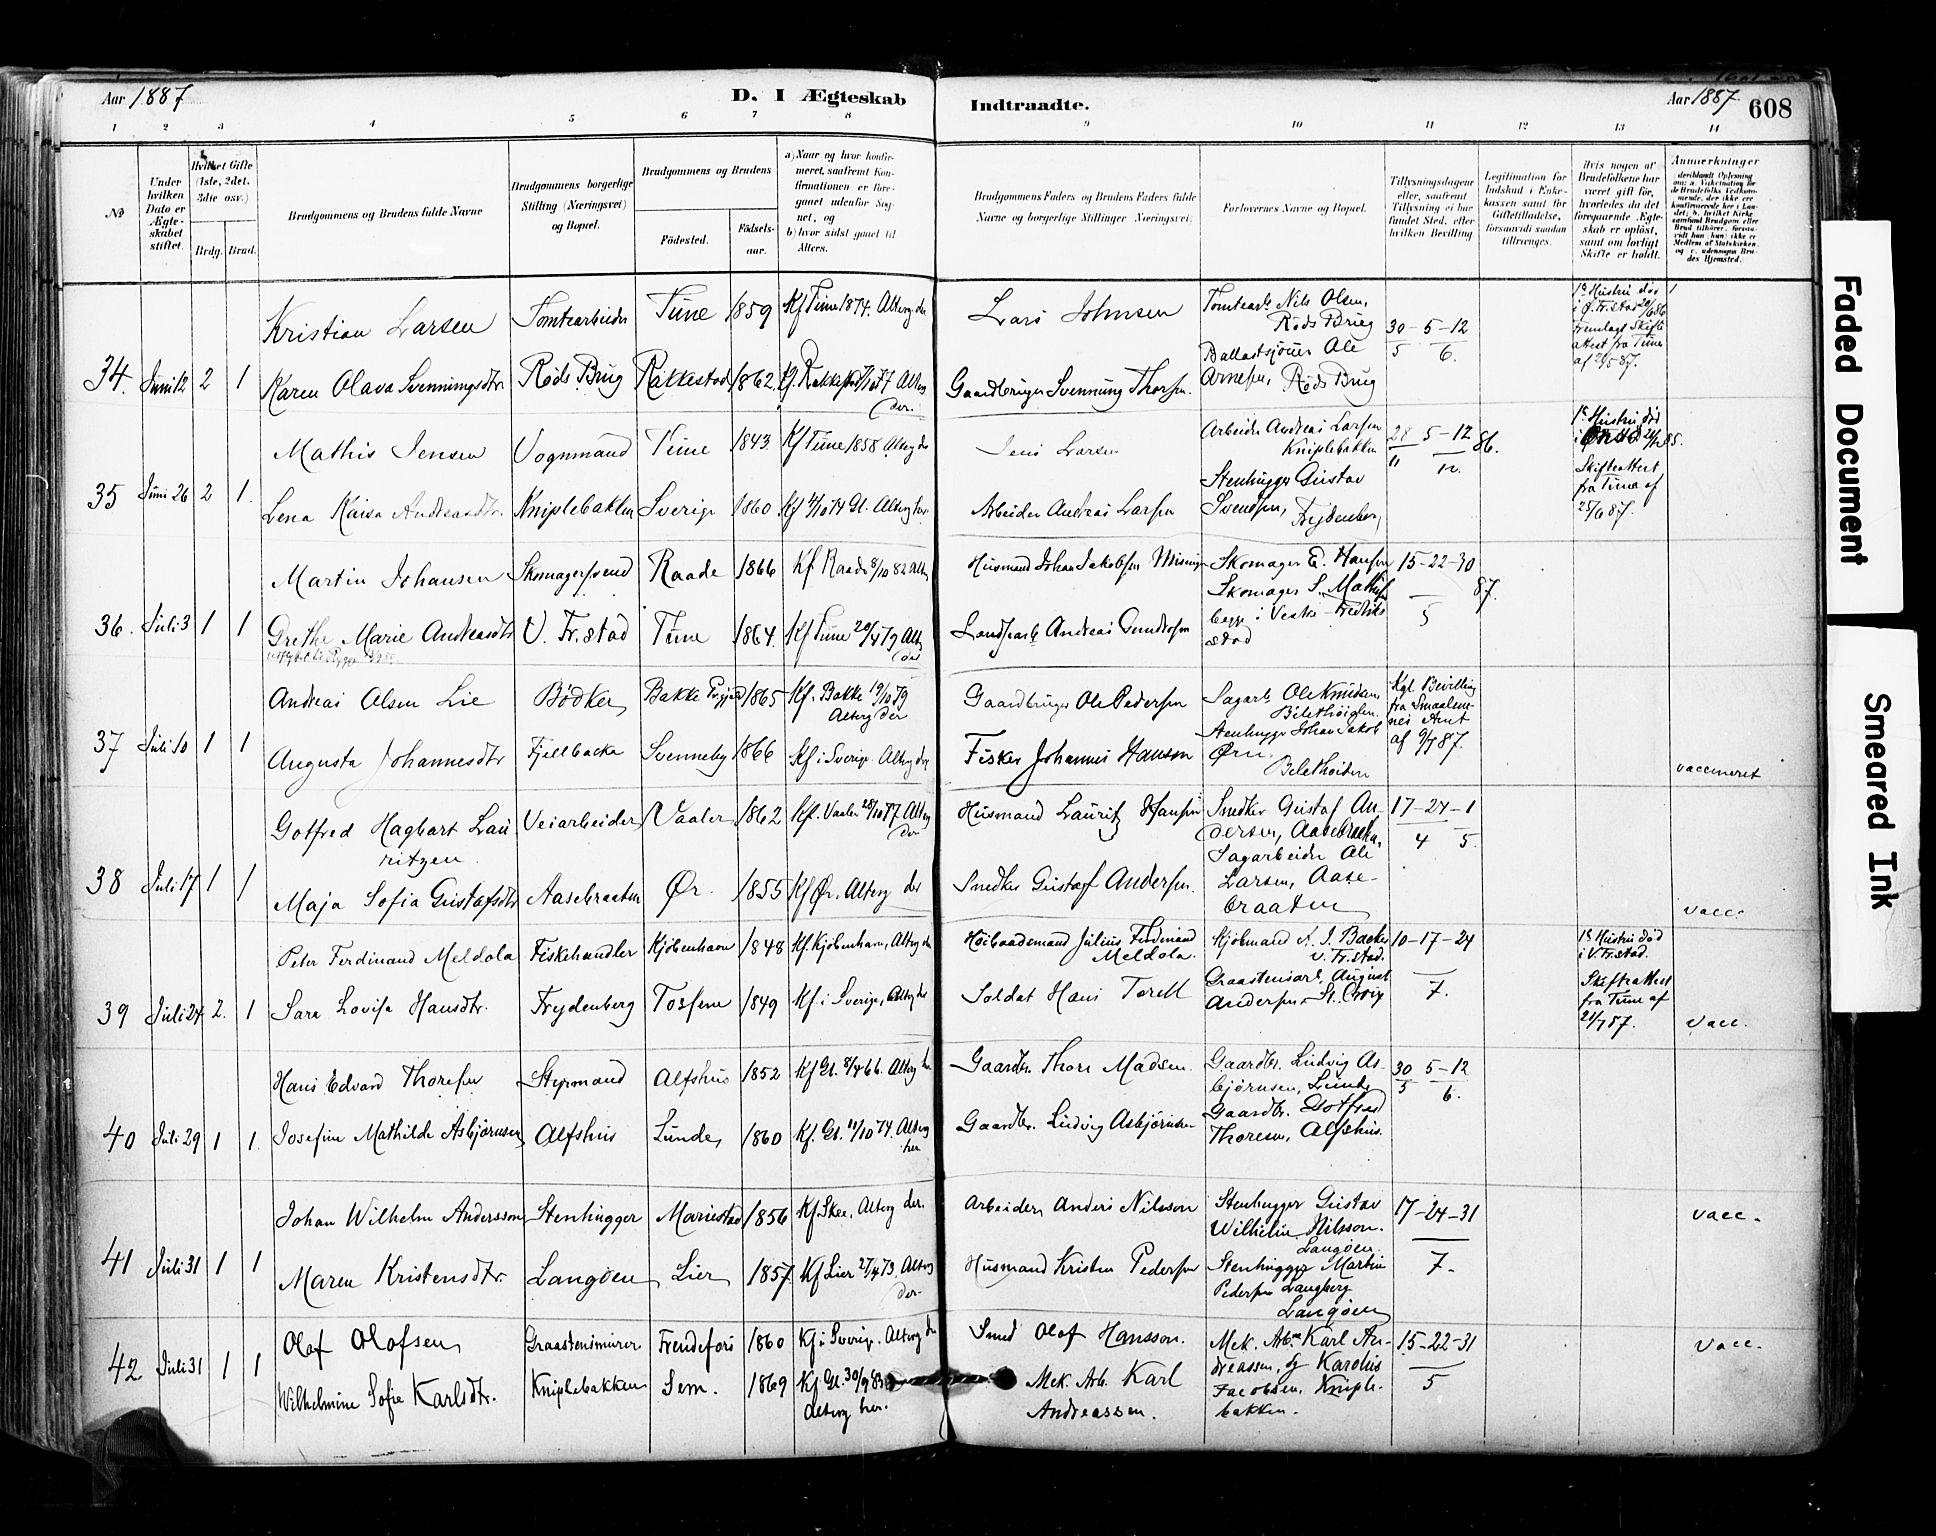 Aar 1887
D. I Ægteskab
Indtraadte.
Aar 1887
608
1 2 3 4 5 6 7 8 9 10 11 12 13 14
No
Under hvilken Dato er Ægteskabet stiftet.
Hvilket Gifte (1ste, 2det, 3die osv.)
Brdg. Brud.
Brudgommens og Brudens fulde Navne
Brudgommens borgerlige Stilling (Næringsvei) og Bopæl.
Brudgommens og Brudens
Fødested.
Fødselsaar.
a) Naar og hvor konfirmeret, saafremt Konfirmationen er foregaaet udenfor Sognet, og
b) hvor sidst gaaet til Alters.
Brudgommens Faders og Brudens Faders fulde Navne og borgerlige Stillinger Næringsvei.
Forlovernes Navne og Bopæl.
Tillysningsdagene eller, saafremt Tillysning ei har fundet Sted, efter hvilken Bevilling
Legitimation for Indskud i Enkekassen samt for Giftetilladelse, forsaavidt saadan tiltrænges.
Hvis nogen af Brudefolkene har været gift før, hvorledes da det foregaaende Ægteskab er opløst, samt om lovligt Skifte er holdt.
Anmerkninger
34. Juni 12 2 1
Kristian Larsen Tomtearbeider Tune 1859 Kf Tune 1874. Alterg der
Lars Johnsen
Tomtearb Nils Olsen, Røds Brug
30/5 - 5 - 12/6.
1e Hustru død i Ø. Fr.stad
Fremlagt Skifteattest fra Tune
Karen Olava Svenningsdtr. Røds Brug Rakkestad 1862. Alterg der.
Gaardbruger Svenning Thorsen.
Ballastsjouer Ole Arnesen, Røds Brug
35 Juni 26 2 1.
Mathis Jensen Vognmand Tune 1843. Kf Tune 1858 Alterg der
Jens Larsen
Arbeider Andreas Larsen Kniplebakken
28/11 5 - 12/12. 86.
1e Hustru død
Skifteattest fra Tune af 25/6 87.
Lena Kaisa Andreasdtr. Kniplebakken Sverige 1860
Arbeider Andreas Larsen
Stenhugger Gustav Svendsen, Frydenberg
36. Juli 3 1 1
Martin Johansen Skomagersvend Raade 1866 Kf Raade 8/10 82 Alterg
Husmand Johan Jakobsen
Skomager E. Hansen
15 - 22 - 30/5 87.
Grethe Marie Andreasdtr V. Fr.stad Tune 1864. Kf Tune 20/4 79 Alterg der
Andreas
Skomager S.
begge i Vestre Fredrikstad
37 Juli 10 1 1
Andreas Olsen Lie Bødker Bakke 1865 Kf. Bakke 19/10 79 Alterg der
Gaardbruger Ole Pedersen
Sagarb Ole Knudsen,
Kgl. Bevilling fra Smaalenenes Amt af 9/7 87.
Augusta Johannesdtr Fjellbacka Svenneby 1866 Kf i Sverige Alterg der
Fisker Johannes Hanson
Stenhugger Johan Jakob Ørn,
vaccineret
38 Juli 17 1 1
Gotfred Hagbart Lauritzen. Veiarbeider Vaaler 1862 Kf. Vaaler 28/10 77. Alterg der
Husmand Lauritz Hansen
Snedker Gustaf Andersen, Aasebraaten,
17 - 24/4 - 1/5.
Maja Sofia Gustafsdtr Aasebraaten Ør. 1855 Kf Ør. Alterg der
Snedker Gustaf Andersen.
Sagarbeider Ole Larsen, Aasebraaten
vacc.
39 Juli 24 2. 1
Peter Ferdinand Meldola Fiskehandler Kjöbenhavn 1848 Kf. Kjöbenhavn, Alterg der
Julius Ferdinand Meldola.
Kjøbmand A. J. Backe V. Fr.stad.
10 - 17 - 24/7.
1e Hustru død i V. Fr.stad.
Skifteattest fra Tune af 21/7 87.
Sara Lovisa Hansdtr. Frydenberg Tossene 1849 Kf. i Sverige, Alterg der
Soldat Hans Torell
Graastensarb. August Andersen St. Croix
Vacc.
40 Juli 29 1 1.
Hans Edvard Thoresen Styrmand Alfshus 1852 Kf Gl. 8/4 66. Alterg her.
Gaardbr. Thore Madsen.
Gaardbr. Ludvig Asbjørnsen, Lunde
30/5 5 - 12/6.
Josefine Mathilde Asbjørnsen Alfshus Lunde, 1860 Kf. Gl. 11/10 74. Alterg her.
Gaardbr. Ludvig Asbjörnsen
Gaardbr. Gotfred Thoresen, Alfshus.
41 Juli 31 1 1
Johan Wilhelm Andersson Stenhugger Mariestad 1856 Kf. Skee, Alterg der.
Arbeider Anders Nilsson
Stenhugger Gustav Wilhelm Nilsson. Langøen.
17 - 24 - 31/7.
vacc.
Maren Kristensdtr. Langøen, Lier, 1857. Kf Lier 27/4 73. Alterg der.
Husmand Kristen Pedersen
Stenhugger Martin Pedersen Langberg Langøen
42 Juli 31 1 1
Olaf Olafsen, Graastensmurer Frendefors 1860 Kf i Sverige. Alterg der
Smed Olof Hansson.
Mek. Arb. Karl Andreassen, og Karolius Jacobsen, Kniplebakken.
15 - 22 - 31/5
Vacc.
Wilhelmine Sofie Karlsdtr. Kniplebakken Sem. 1869 Kf Gl. 30/9 83 Alterg her.
Mek. Arb. Karl Andreassen.
Faded Document
Smeared Ink